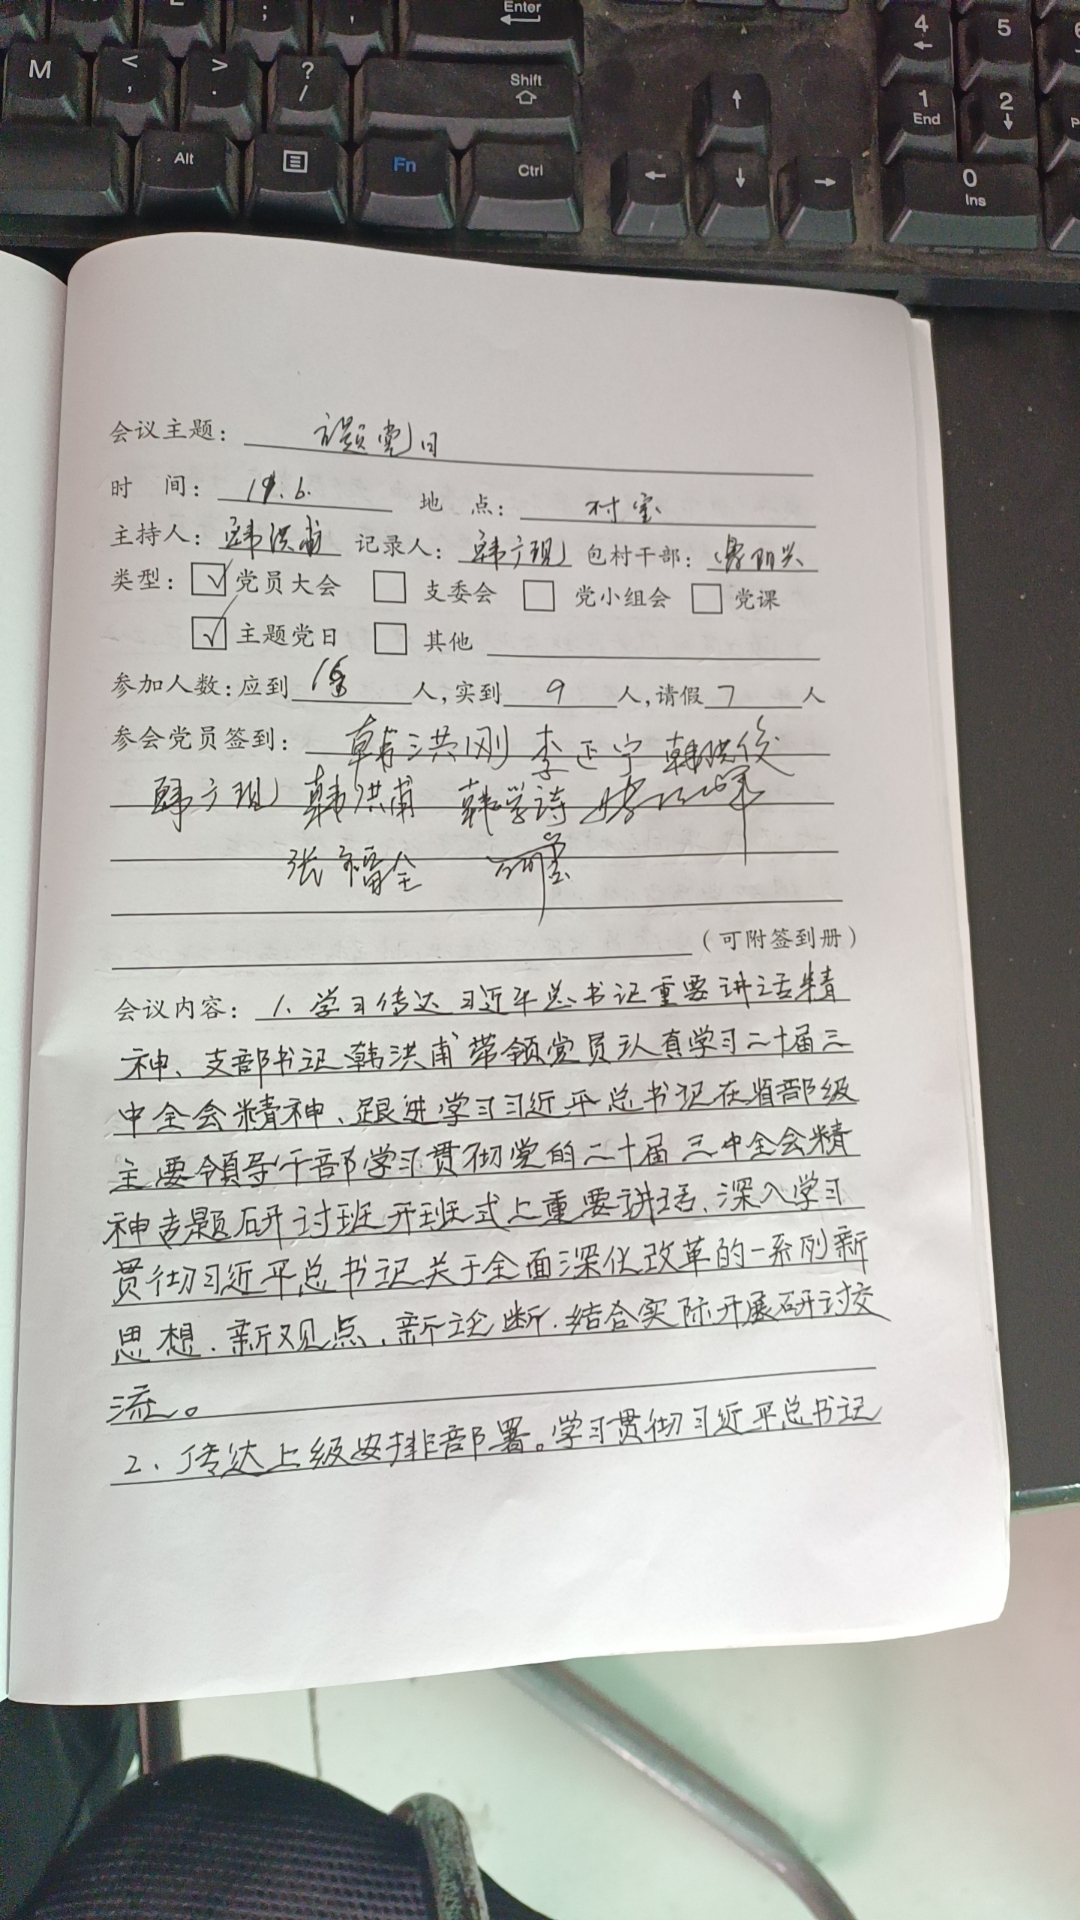 Enter
M < , > . ? / Shift 4 5
1 End 2
Alt Fn Ctrl 0 Ins
会议主题: 主题党日
时 间: 地 点: 村室
主持人: 韩洪甫 记录人: 韩广现 包村干部:
类型: 党员大会 支委会 党小组会 党课
主题党日 其他
参加人数:应到 人,实到 9 人,请假 7 人
参会党员签到: 韩洪刚 李正宁 韩洪俊
韩广现 韩洪甫 韩学诗
张福全
(可附签到册)
会议内容: 1、学习传达习近平总书记重要讲话精
神、支部书记韩洪甫带领党员认真学习二十届三
中全会精神、跟进学习习近平总书记在省部级
主要领导干部学习贯彻党的二十届三中全会精
神专题研讨班开班式上重要讲话、深入学习
贯彻习近平总书记关于全面深化改革的一系列新
思想、新观点、新论断、结合实际开展研讨交
流。
2、传达上级安排部署。学习贯彻习近平总书记